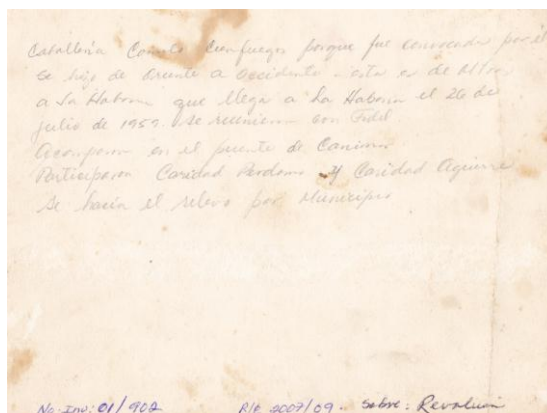 Caballería Camilo Cienfuegos porque fue convocada por él
se hizo de Oriente a Occidente - esta es de
a La Habana que llega a La Habana el 26 de
julio de 1959. Se reunieron con Fidel.
Acamparon en el puente de Canimar
Participaron Caridad Perdomo y Caridad Aguirre
Se hacía el relevo por Municipio
No. Inv: 01/902 R/E 2007/09 - Sobre: Revolución